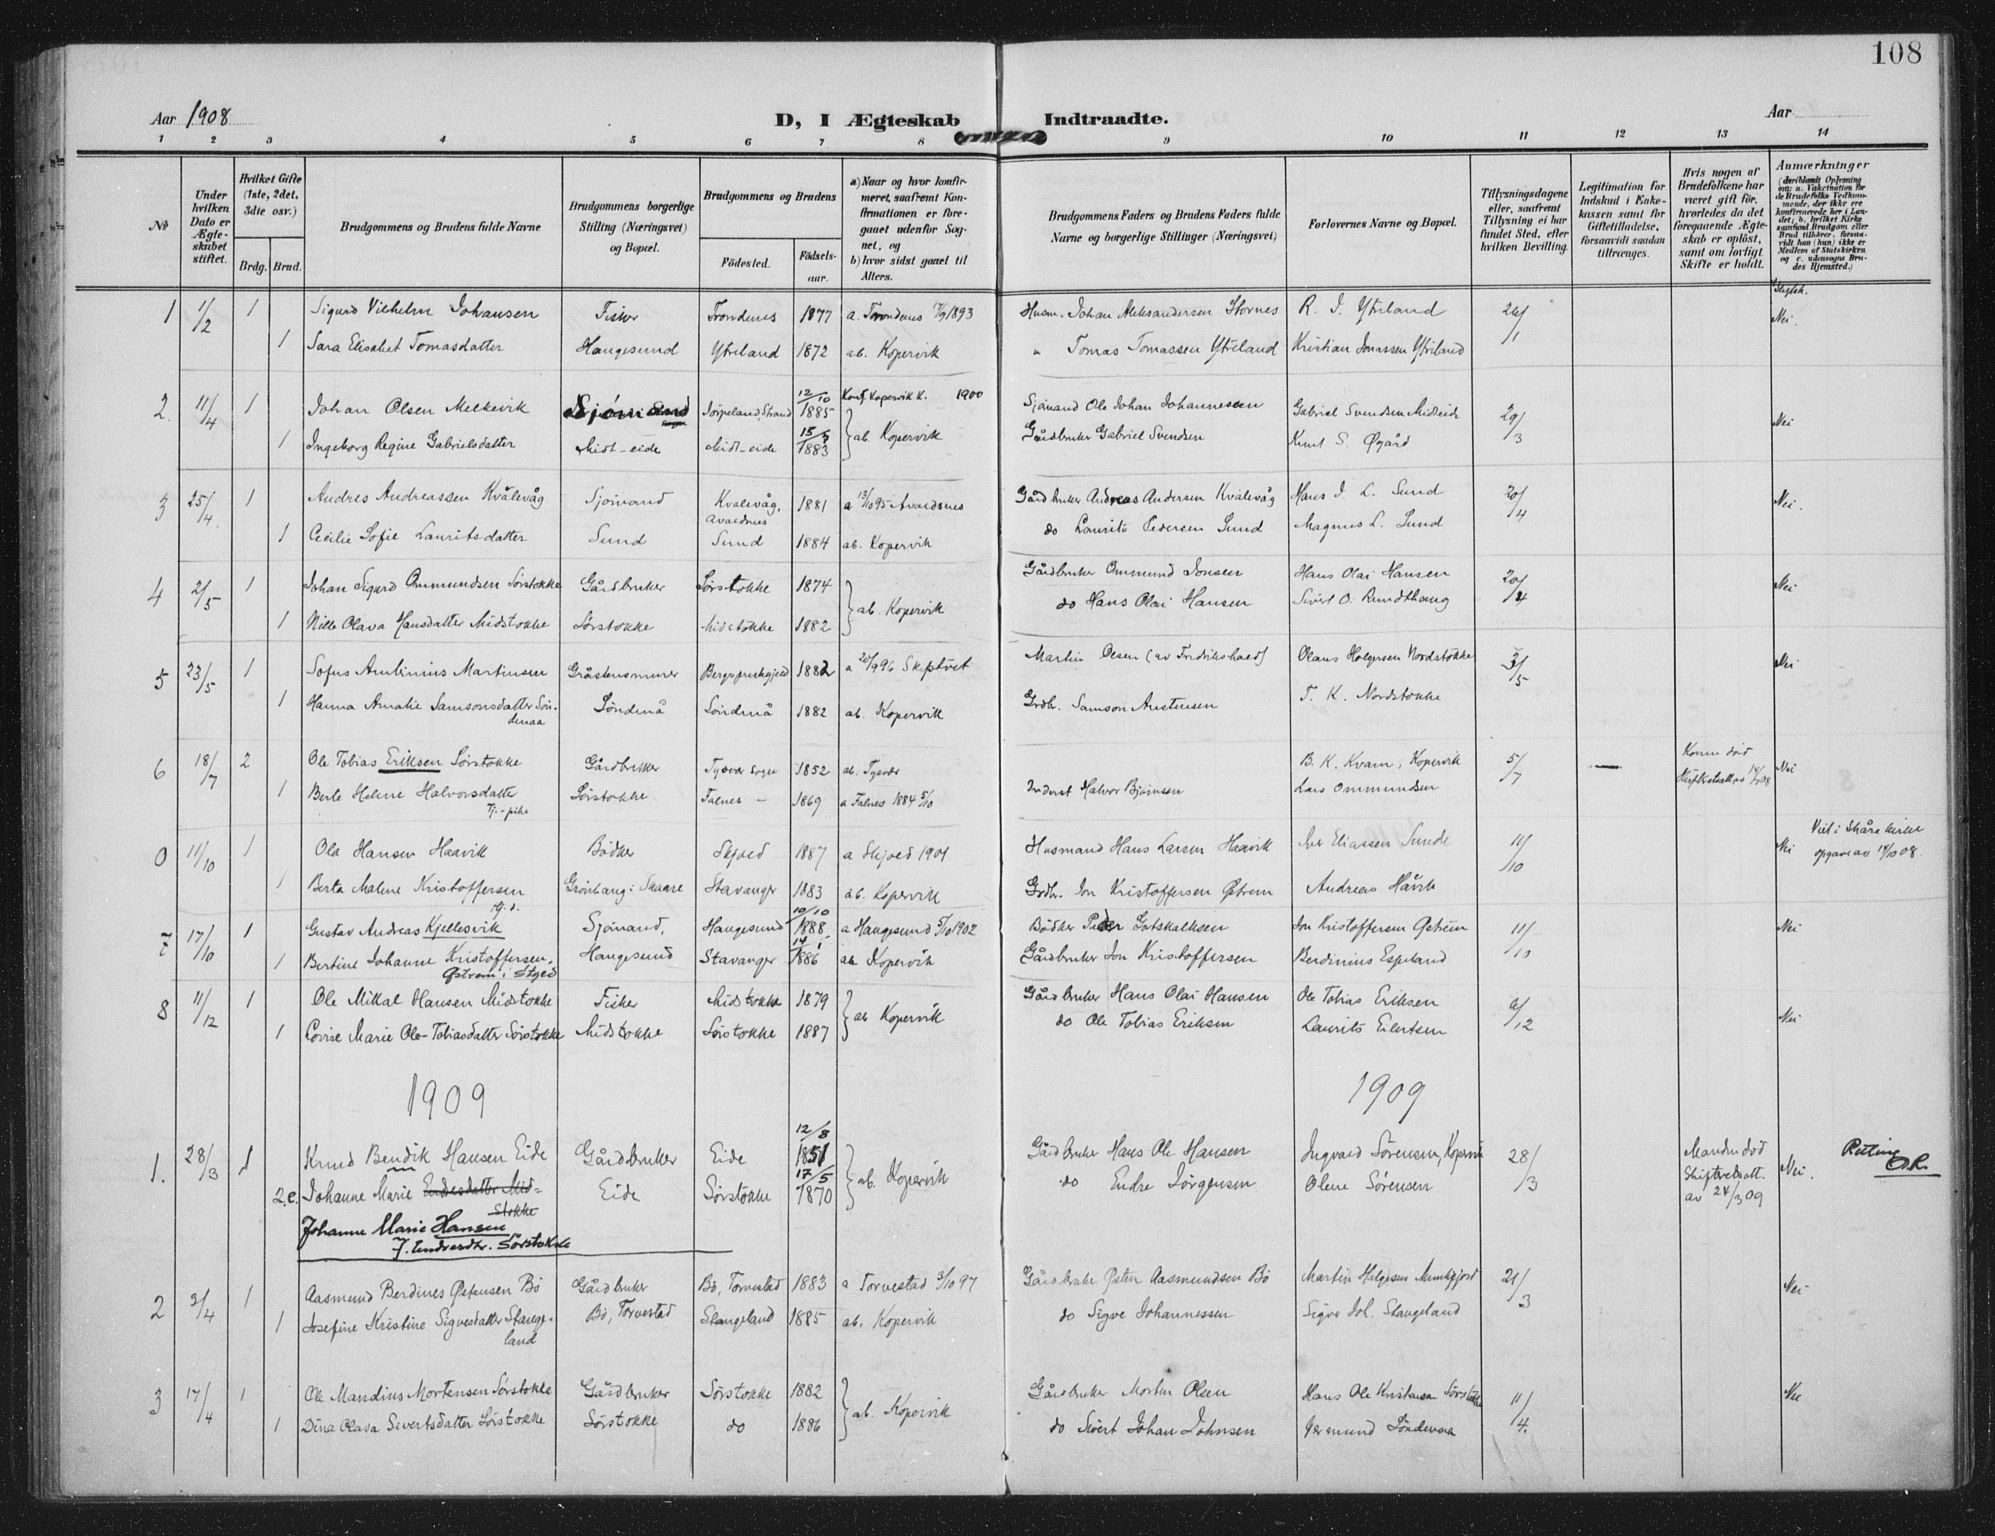 108
Aar 1908
D, I Ægteskab Indtraadte.
Aar
1 2 3 4 5 6 7 8 9 10 11 12 13 14
No
Under hvilken Dato er Ægteskabet stiftet.
Hvilket Gifte (1ste, 2det, 3die osv.)
Brdg. Brud.
Brudgommens og Brudens fulde Navne
Brudgommens borgerlige Stilling (Næringsvei) og Bopæl.
Brudgommens og Brudens
Födested. Födselsaar.
a) Naar og hvor konfirmeret, saafremt Konfirmationen er foregaaet udenfor Sognet, og
b) hvor sidst gaaet til Alters.
Brudgommens Faders og Brudens Faders fulde Navne og borgerlige Stillinger (Næringsvei)
Forlovernes Navne og Bopæl.
Tillysningsdagene eller, saafremt Tillysning ei har fundet Sted, efter hvilken Bevilling.
Legitimation for Indskud i Enkekassen samt for Giftetilladelse, forsaavidt saadan tiltrænges.
Hvis nogen af Brudefolkene har været gift för, hvorledes da det foregaaende Ægteskab er oplöst, samt om lovligt Skifte er holdt.
Anmærkninger
(deriblandt Oplysning om: a. Vakcination for de Brudefolks Vedkommende, der ikke ere konfirmerede her i Landet; b. hvilket Kirkesamfund Brudgom eller Brud tilhörer, forsaavidt han (hun) ikke er Medlem af Statskirken og c. udensogns Brudes Hjemsted.)
Slegtsk.
1 1/2 1 Sigurd Vilhelm Johansen Fisker Trondenes 1877 a. Trondenes 17/9 1893 Husm. Johan Aleksandersen Stornes R. I. Ytreland 26/1 Nei.
1 Sara Elisabet Tomasdatter Haugesund Ytreland 1872 ab. Kopervik " Tomas Tomassen Ytreland Kristian Jonassen Ytreland
2. 11/4 1 Johan Olsen Melkevik Sjömand Jörpeland, Strand 12/10 1885 Konf. Kopervik K. 1900 Sjömand Ole Johan Johannessen Gabriel Svendsen Midteide 29/3 Nei
1 Ingeborg Regine Gabrielsdatter Midt-eide Midt-eide 15/3 1883 ab. Kopervik Gårdbruker Gabriel Svendsen Knut S. Øgård
3 25/4. 1 Andres Andreassen Kvålevåg Sjömand Kvalevåg, Avaldsnes 1881 a 13/10 95 Avaldsnes Gårdbruker Andreas Andersen Kvalevåg Hans J. L. Sund 20/4 Nei.
1 Cecilie Sofie Lauritsdatter Sund Sund 1884 ab. Kopervik do Laurits Pedersen Sund Magnus L. Sund
4 2/5 1 Johan Sigurd Ommundsen Sörstokke Gårdbruker Sörstokke 1874 ab. Kopervik Gårdbruker Ommund Jonsen Hans Olai Hansen 20/4 Nei
1 Nille Olava Hansdatter Midstokke Sörstokke Midstokke 1882 do Hans Olai Hansen Sivert O. Rundthaug
5 23/5 1 Sofus Antinius Martinsen Gråstensmurer 1882 a 20/9 96 Skiptvet Martin Olsen (av Fredrikshald) Olaus Holgersen Nordstokke 3/5 Nei
1 Hanna Amalie Samsonsdatter Söndenaa Söndenå Söndenå 1882 ab. Kopervik Grdbr. Samson Austinsen T. K. Nordstokke
6 18/7 2 Ole Tobias Eriksen Sörstokke Gårdbruker Tysvær Sogn 1852 ab. Tysvær B. K. Kvam, Kopervik 5/7 — Konen död Nei
1 Berte Helene Halvorsdatter Tj.-pike Sörstokke Falnes - 1869 a Falnes 1884 5/10 Inderst Halvor Björnsen Lars Ommundsen
0 11/10 1 Ole Hansen Haavik Bödker Skjold 1887 a Skjold 1901 Husmand Hans Larsen Haavik Iver Eliassen Sunde 11/10 Nei Viet i Skåre kirke opgave av 14/10 08.
1 Berta Maline Kristoffersen Grönhaug i Skaare Stavanger 1883 ab. Kopervik Grdbr. Jon Kristoffersen Östrem Andreas Håvik
7 17/10 1 Gustav Andreas Kjellesvik Sjömand, Haugesund 10/10 1888 a Haugesund 5/10 1902 Bödker Peder Gotskalksen Jon Kristoffersen Östrem 11/10 Nei
1 Bertine Johanne Kristoffersen, Östrem i Skjold Haugesund Stavanger 14/1 1886 ab Kopervik Gårdbruker Jon Kristoffersen Berdinius Espeland
8 11/12 1 Ole Mikal Hansen Midstokke Fisker Midstokke 1879 ab Kopervik Gårdbruker Hans Olai Hansen Ole Tobias Eriksen 6/12 Nei
1 Lovise Marie Ole-Tobiasdatter Sörstokke Midstokke Sörstokke 1887 do Ole Tobias Eriksen Laurits Eilertsen
1909 1909
1. 28/3 1 Knud Bendik Hansen Eide Gårdbruker Eide 12/8 1851 ab. Kopervik Gårdbruker Hans Ole Hansen Ingvald Sörensen, Kopervik 28/3 Manden död Skifteretsatt. av 24/3 09 Nei. Retting
2.e. Johanne Marie Endresdatter Midstokke Eide Sörstokke 17/5 1870 do Endre Jörgensen Olene Sörensen
Johanne Marie Hansen
f. Endresdtr. Sörstokke
2 3/4 1 Aasmund Berdines Östensen Bö Gårdbruker Bö, Torvestad 1883 a Torvestad 3/10 97 Gårdbruker Östen Aasmundsen Bö Martin Helgesen Munkejord 21/3 Nei
1 Josefine Kristine Sigvesdatter Stangeland Bö, Torvestad Stangeland 1885 ab. Kopervik do Sigve Johannessen Sigve Joh. Stangeland
3 17/4 1 Ole Mandius Mortensen Sörstokke Gårdbruker Sörstokke 1882 ab. Kopervik Gårdbruker Morten Olsen Hans Ole Kristensen Sörstokke 11/4. Nei
1 Dina Olava Sivertsdatter Sörstokke Sörstokke do 1886 do Sivert Johan Johnsen Germund Söndenaa